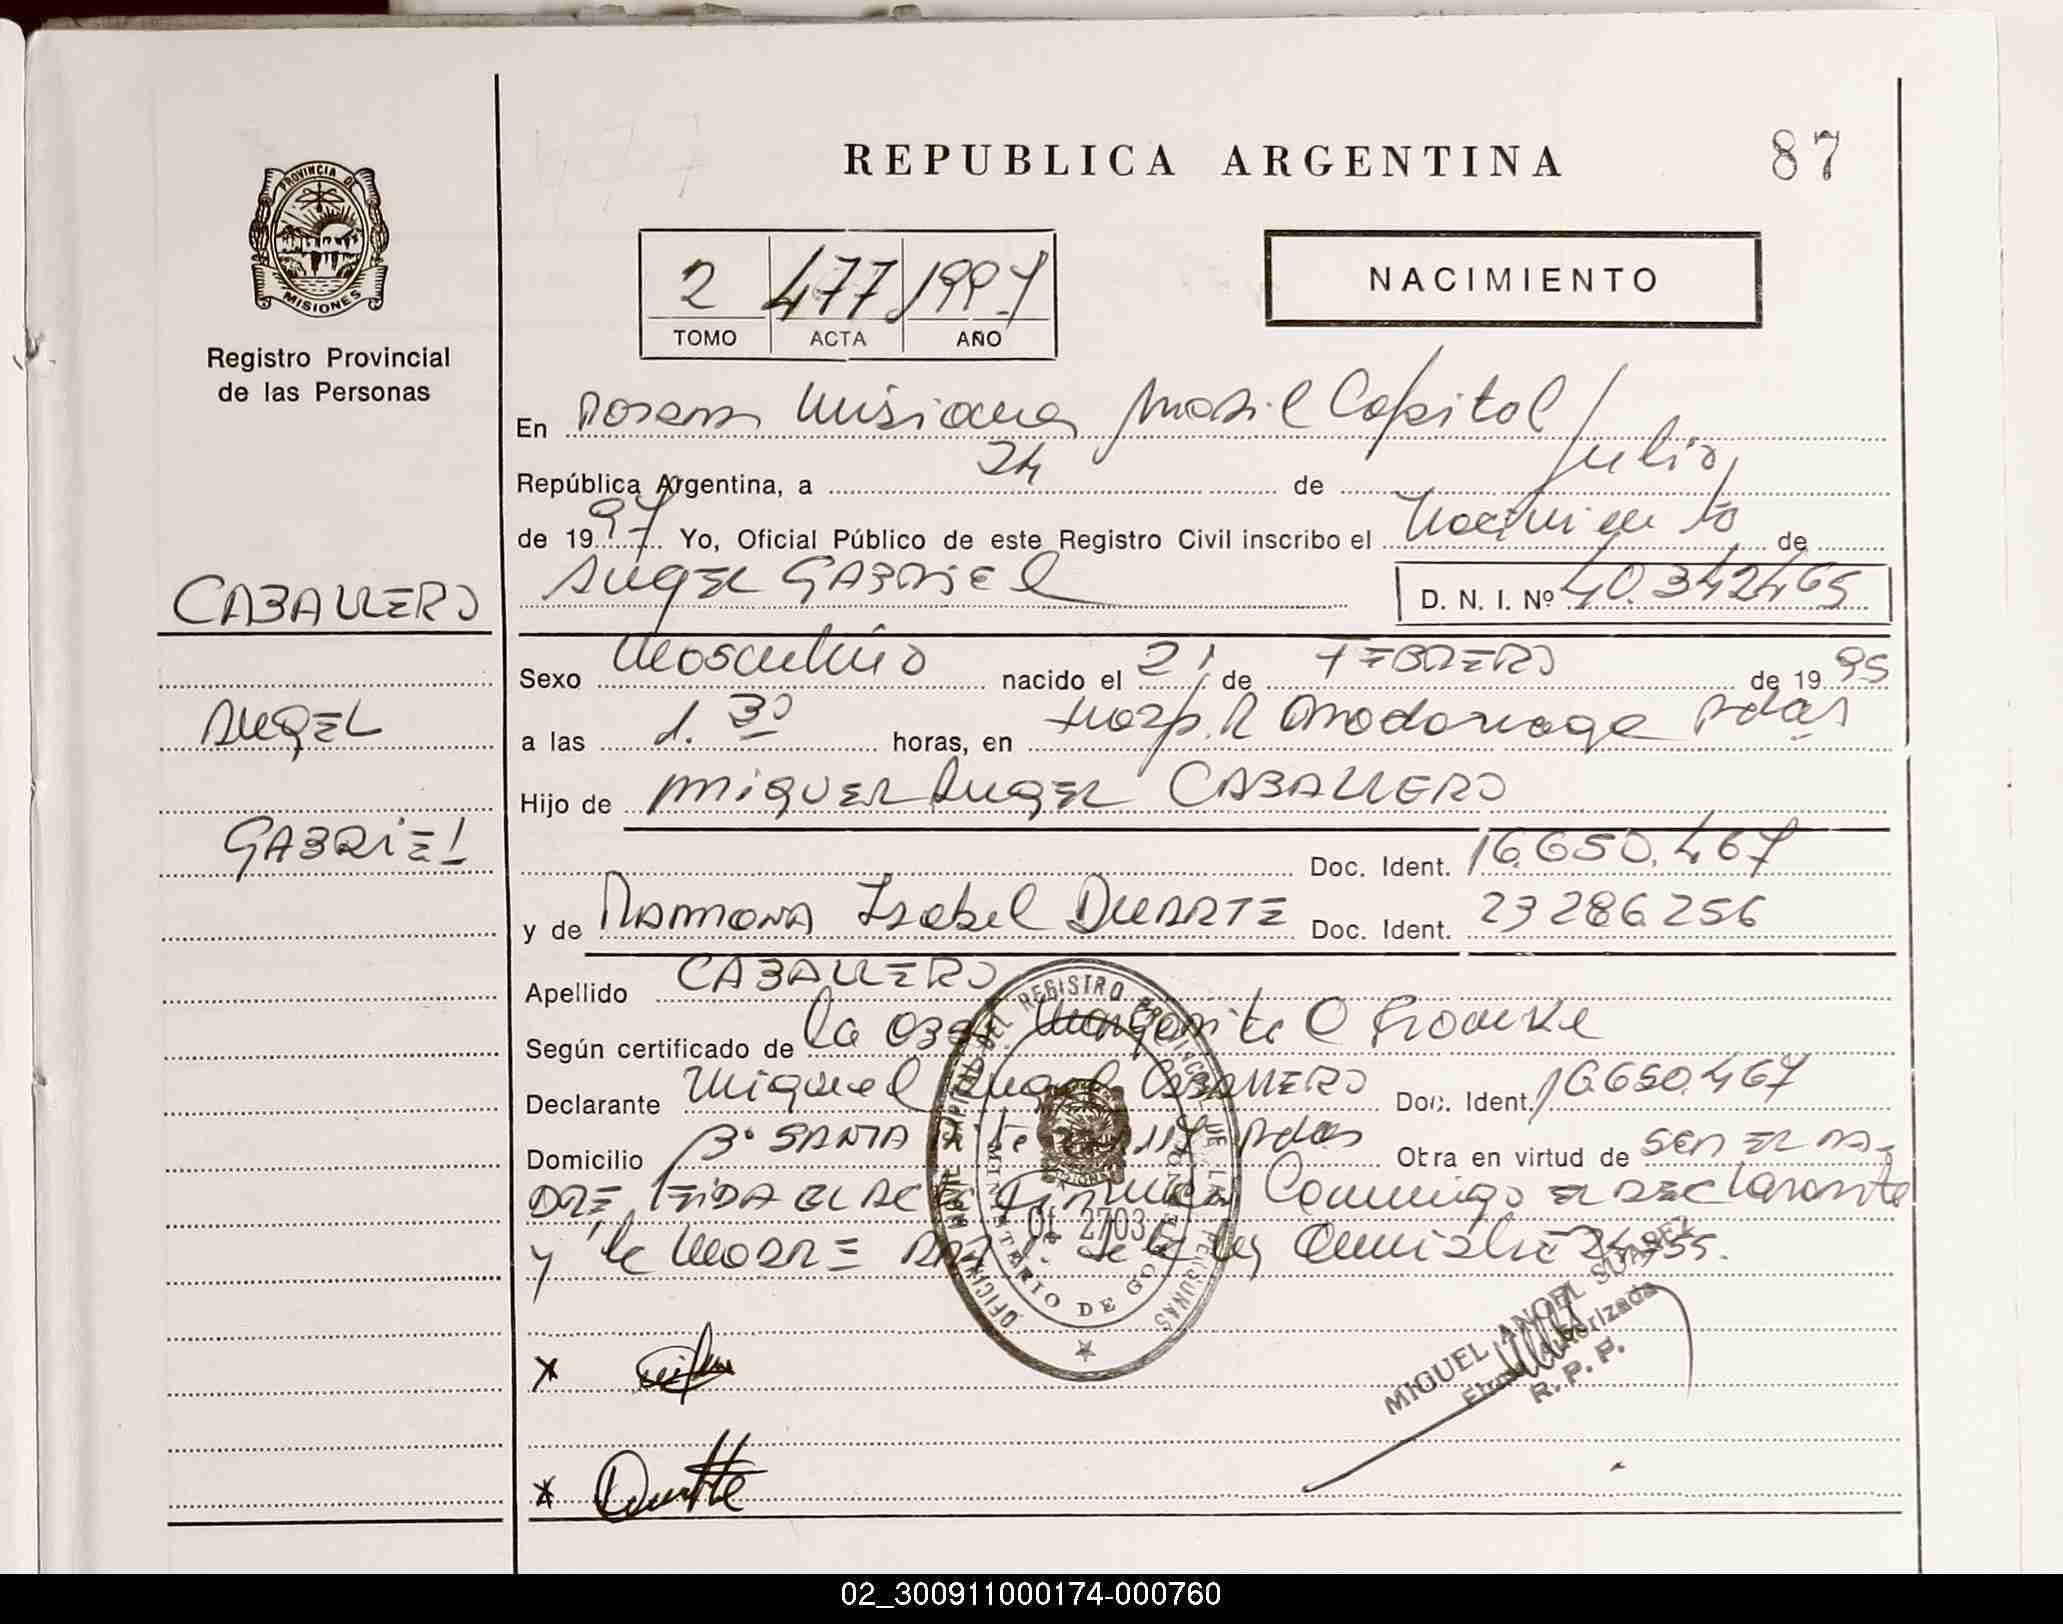 REPUBLICA ARGENTINA
87
PROVINCIA DE
MISIONES
Registro Provincial
de las Personas
2 477 1997
TOMO ACTA AÑO
NACIMIENTO
En Posadas Misiones Capital
República Argentina, a 24 de Julio,
de 1997 Yo, Oficial Público de este Registro Civil inscribo el Nacimiento de
ANGEL GABRIEL D. N. I. Nº 40.342465
CABALLERO
Sexo Masculino nacido el 21 de FEBRERO de 1995
ANGEL
a las 1.30 horas, en Hosp. R Madariaga Pdas
Hijo de MIGUEL ANGEL CABALLERO
GABRIEL
Doc. Ident. 16.650.467
y de RAMONA Isabel DUARTE Doc. Ident. 23286256
Apellido CABALLERO
Según certificado de la Margarita O
Declarante Miguel Angel CABALLERO Doc. Ident. 16.650.467
Domicilio Bº SANTA Rita Pdas Obra en virtud de SER EL PA-
DRE LEIDA EL ACTA Firman Conmigo EL DECLarante
y la MADRE
OFICINA DEL REGISTRO PROVINCIAL DE LAS PERSONAS
MINISTERIO DE GOBIERNO
Of. 2703
MIGUEL ANGEL SUAREZ
Firma Autorizada
R. P. P.
x
x Duarte
02_300911000174-000760